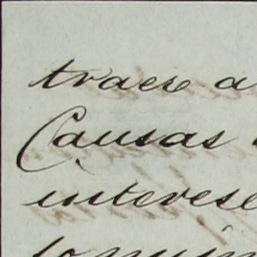 traer a
Causas
interese